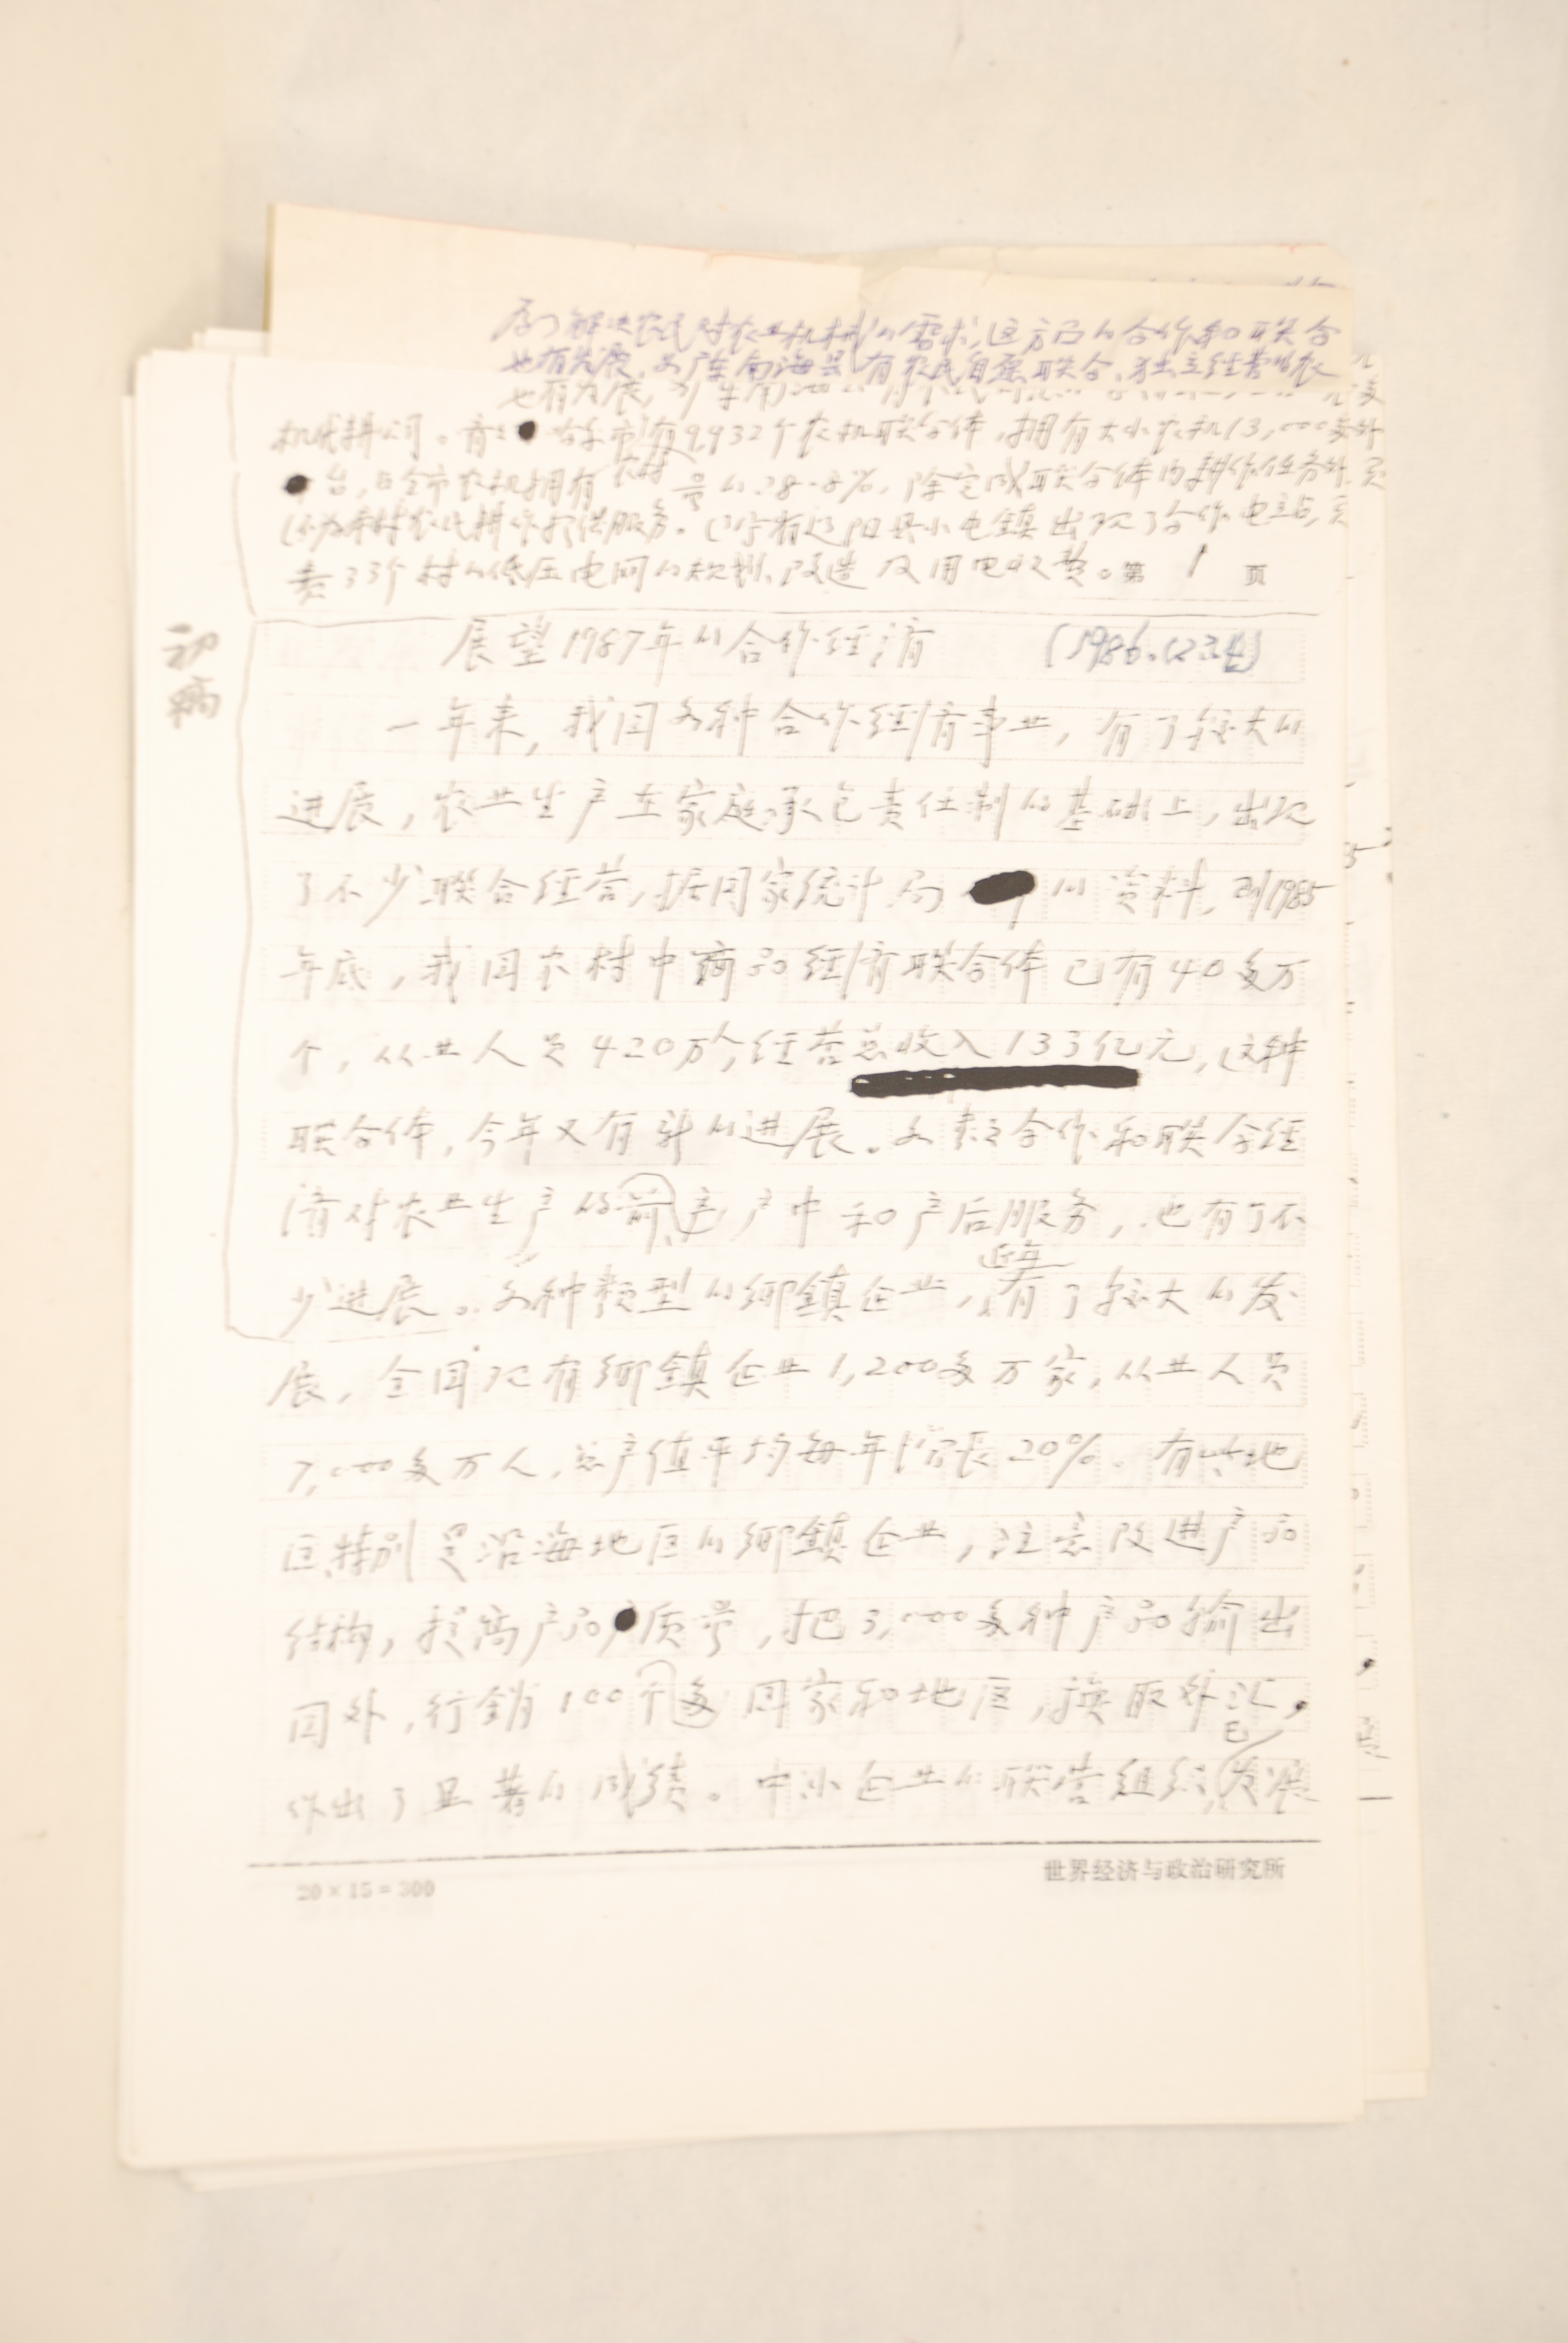 为了解决农民对农业机械的需求,这方面的合作和联合
也有发展,如广东南海县有农民自愿联合、独立经营的农
机代耕公司。有9,932个农机联合体,拥有大小农机13,000
台,占全市农机拥有量的28.8%,除完成联合体内耕作任务外
还为村农代耕作提供服务。辽宁省辽阳县小屯镇出现了合作电站,
责33个村的低压电网的规划、改造及用电收费。第1页
初稿
展望1987年的合作经济 (1986.12.24)
一年来,我国各种合作经济事业,有了较大的
进展,农业生产在家庭承包责任制的基础上,出现
了不少联合经营,据国家统计局的资料,到1985
年底,我国农村中商品经济联合体已有40多万
个,从业人员420万人,经营总收入133亿元,这种
联合体,今年又有新的进展。各种合作和联合经
济对农业生产的前产产中和产后服务,也有了不
近年
少进展。各种类型的鄉鎮企业,有了较大的发
展,全国现有鄉鎮企业1,200多万家,从业人员
7,000多万人,总产值平均每年增长20%。有些地
区,特别是沿海地区的鄉鎮企业,注意改进产品
结构,提高产品质量,把3,000多种产品输出
国外,行销100个多国家和地区,换取外汇,
已
作出了显著的成绩。中小企业的联营组织,发展
20×15=300
世界经济与政治研究所